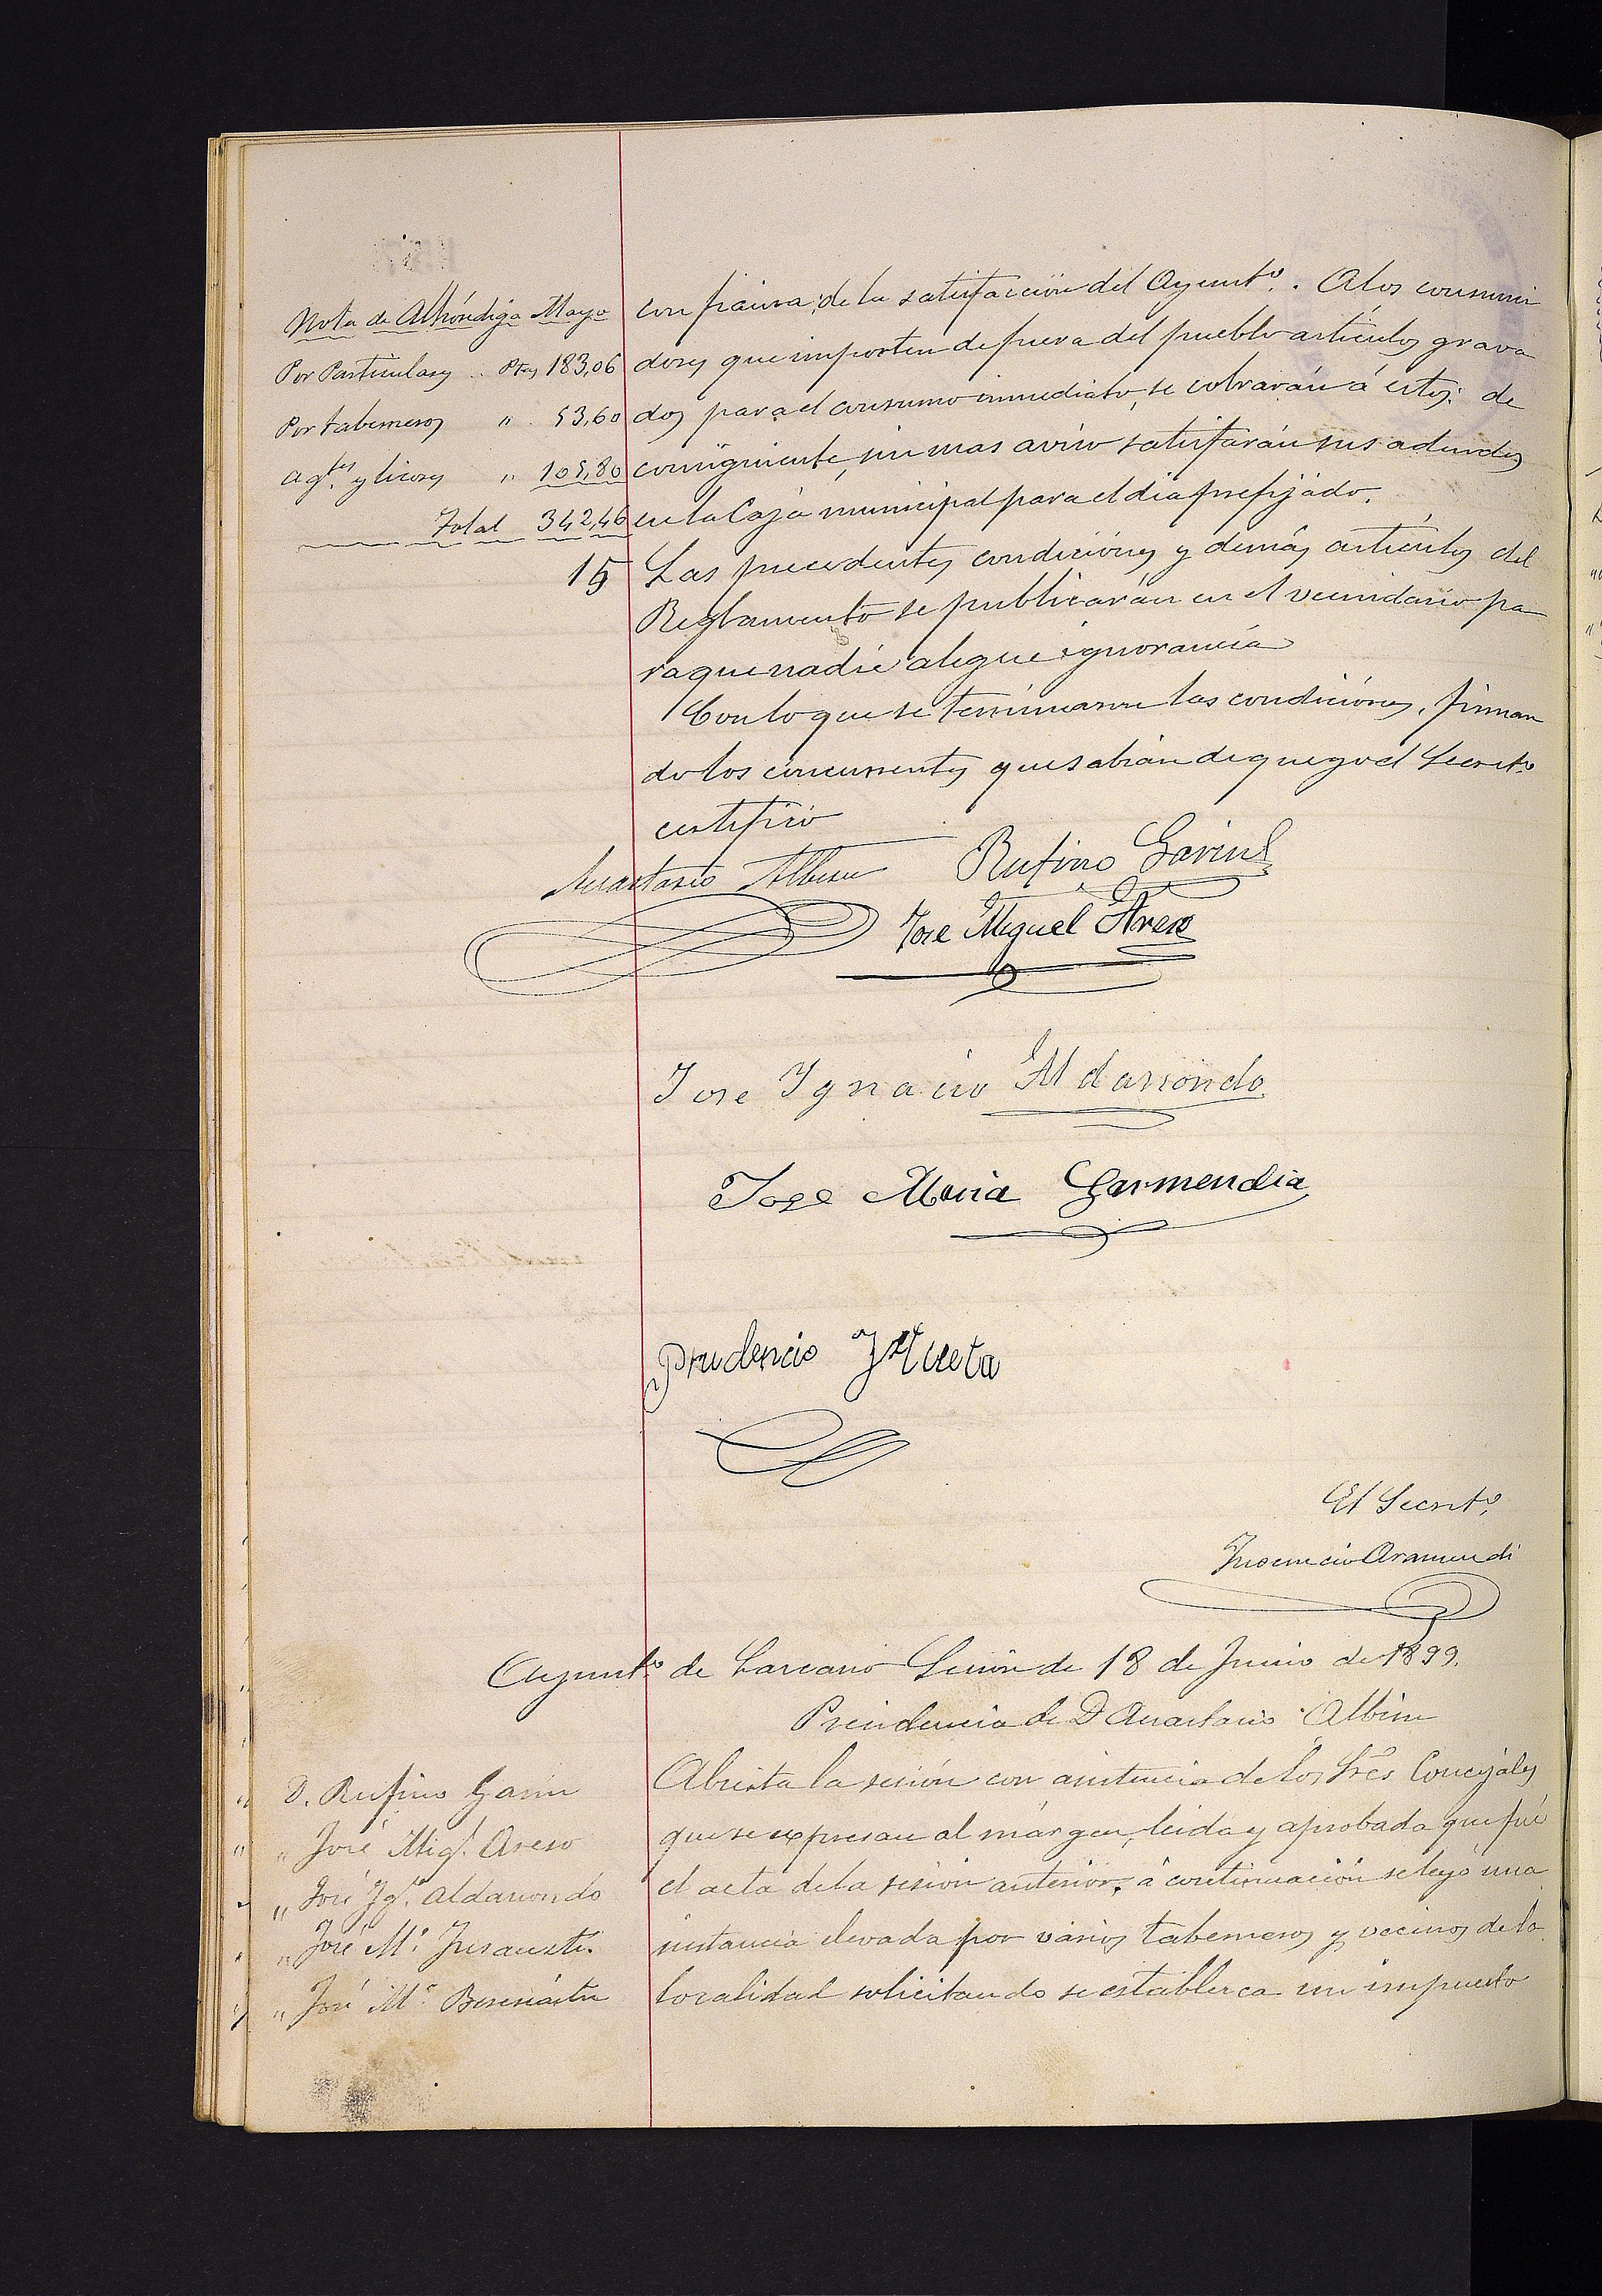 Nota de Alhóndiga Mayo
Por Particulares .. Ptas 183,06
Por taberneros " 53,60
Agtes y licores " 105,80
Total 342,46
con fianza, de la satisfaccion del Ayuntº. A los consumi
dores que importen de fuera del pueblo articulos grava
dos para el consumo inmediato, se cobrarán á estos: de
consiguiente, sin mas aviso satisfarán sus adeudos
en la Caja municipal para el dia prefijado.
15 Las precedentes condiciones y demás articulos del
Reglamento se publicarán en el vecindario pa
ra que nadie alegue ignorancia
Con lo que se terminaron las condiciones, firman
do los concurrentes que sabian de que yo el Secretº
certifico
Anastasio Albisu
Rufino Garin
Jose Miguel Areso
Jose Ygnacio Aldarrondo
Jose Maria Garmendia
Prudencio Yztueta
El Secretº,
Inocencio Aramendi
Ayuntº de Larcano Sesion de 18 de Junio de 1899.
Presidencia de D Anastasio Albisu
D. Rufino Garin
" José Migl. Areso
" José Ygº. Aldarrondo
" José Mª.
" José Mª.
Abierta la sesión con asistencia de los Sres Concejales
que se expresan al márgen, leida y aprobada que fué
el acta de la sesion anterior, á continuación se leyó una
instancia elevada por varios taberneros y vecinos de la
localidad solicitando se establezca un impuesto